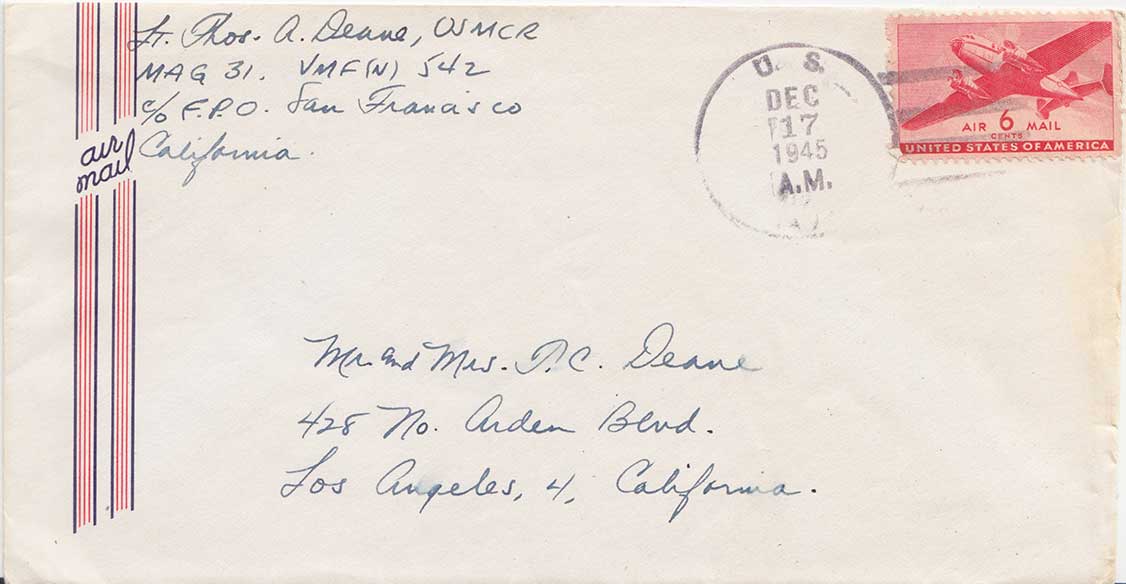 Lt. Thos. A. Deane, USMCR
MAG 31. VMF(N) 542
c/o F.P.O. San Francisco
California.
air
mail
U. S.
DEC
17
1945
A.M.
AIR 6 MAIL
CENTS
UNITED STATES OF AMERICA
Mr. and Mrs. T. C. Deane
428 No. Arden Blvd.
Los Angeles, 4, California.